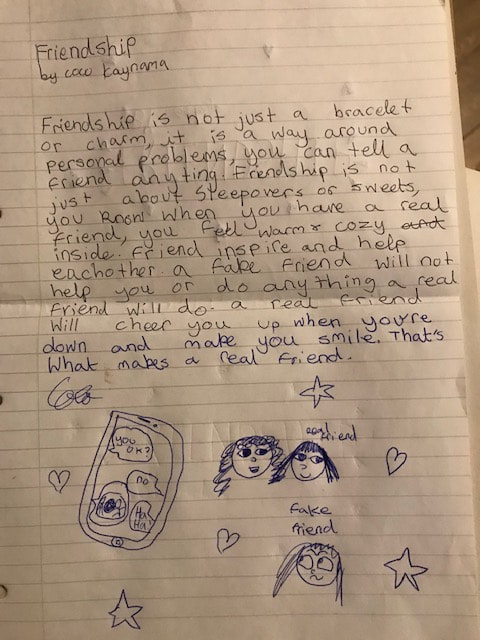 Friendship
by coco Kaynama
Friendship is not just a bracelet
or charm, it is a way around
personal problems, you can tell a
friend anyting! Friendship is not
just about Sleepovers or sweets,
you know when you have a real
friend, you feel warm & cozy and
inside. Friend inspire and help
eachother. a fake friend will not
help you or do anything a real
friend will do. a real friend
will cheer you up when you're
down and make you smile. That's
What makes a real friend.
Coco
you OK?
no
Ha Ha
real friend
fake
friend